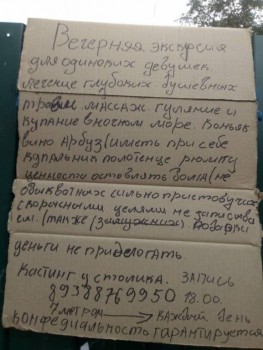 Вечерняя экскурсия
для одиноких девушек
лечение глубоких душевных
травм массаж. гуляние и
купание в ночном море. Коньяк
вино Арбуз (иметь при себе
купальник полотенце рюмку
ценности оставлять
обыкват них сильно пристовучих
с корысными целями не записыва
ем. (также / замужних). подарки
деньги не предлогать
Кастинг у столика. запись
89388769950 18.00.
каждый день
конфедиальность гарантируется